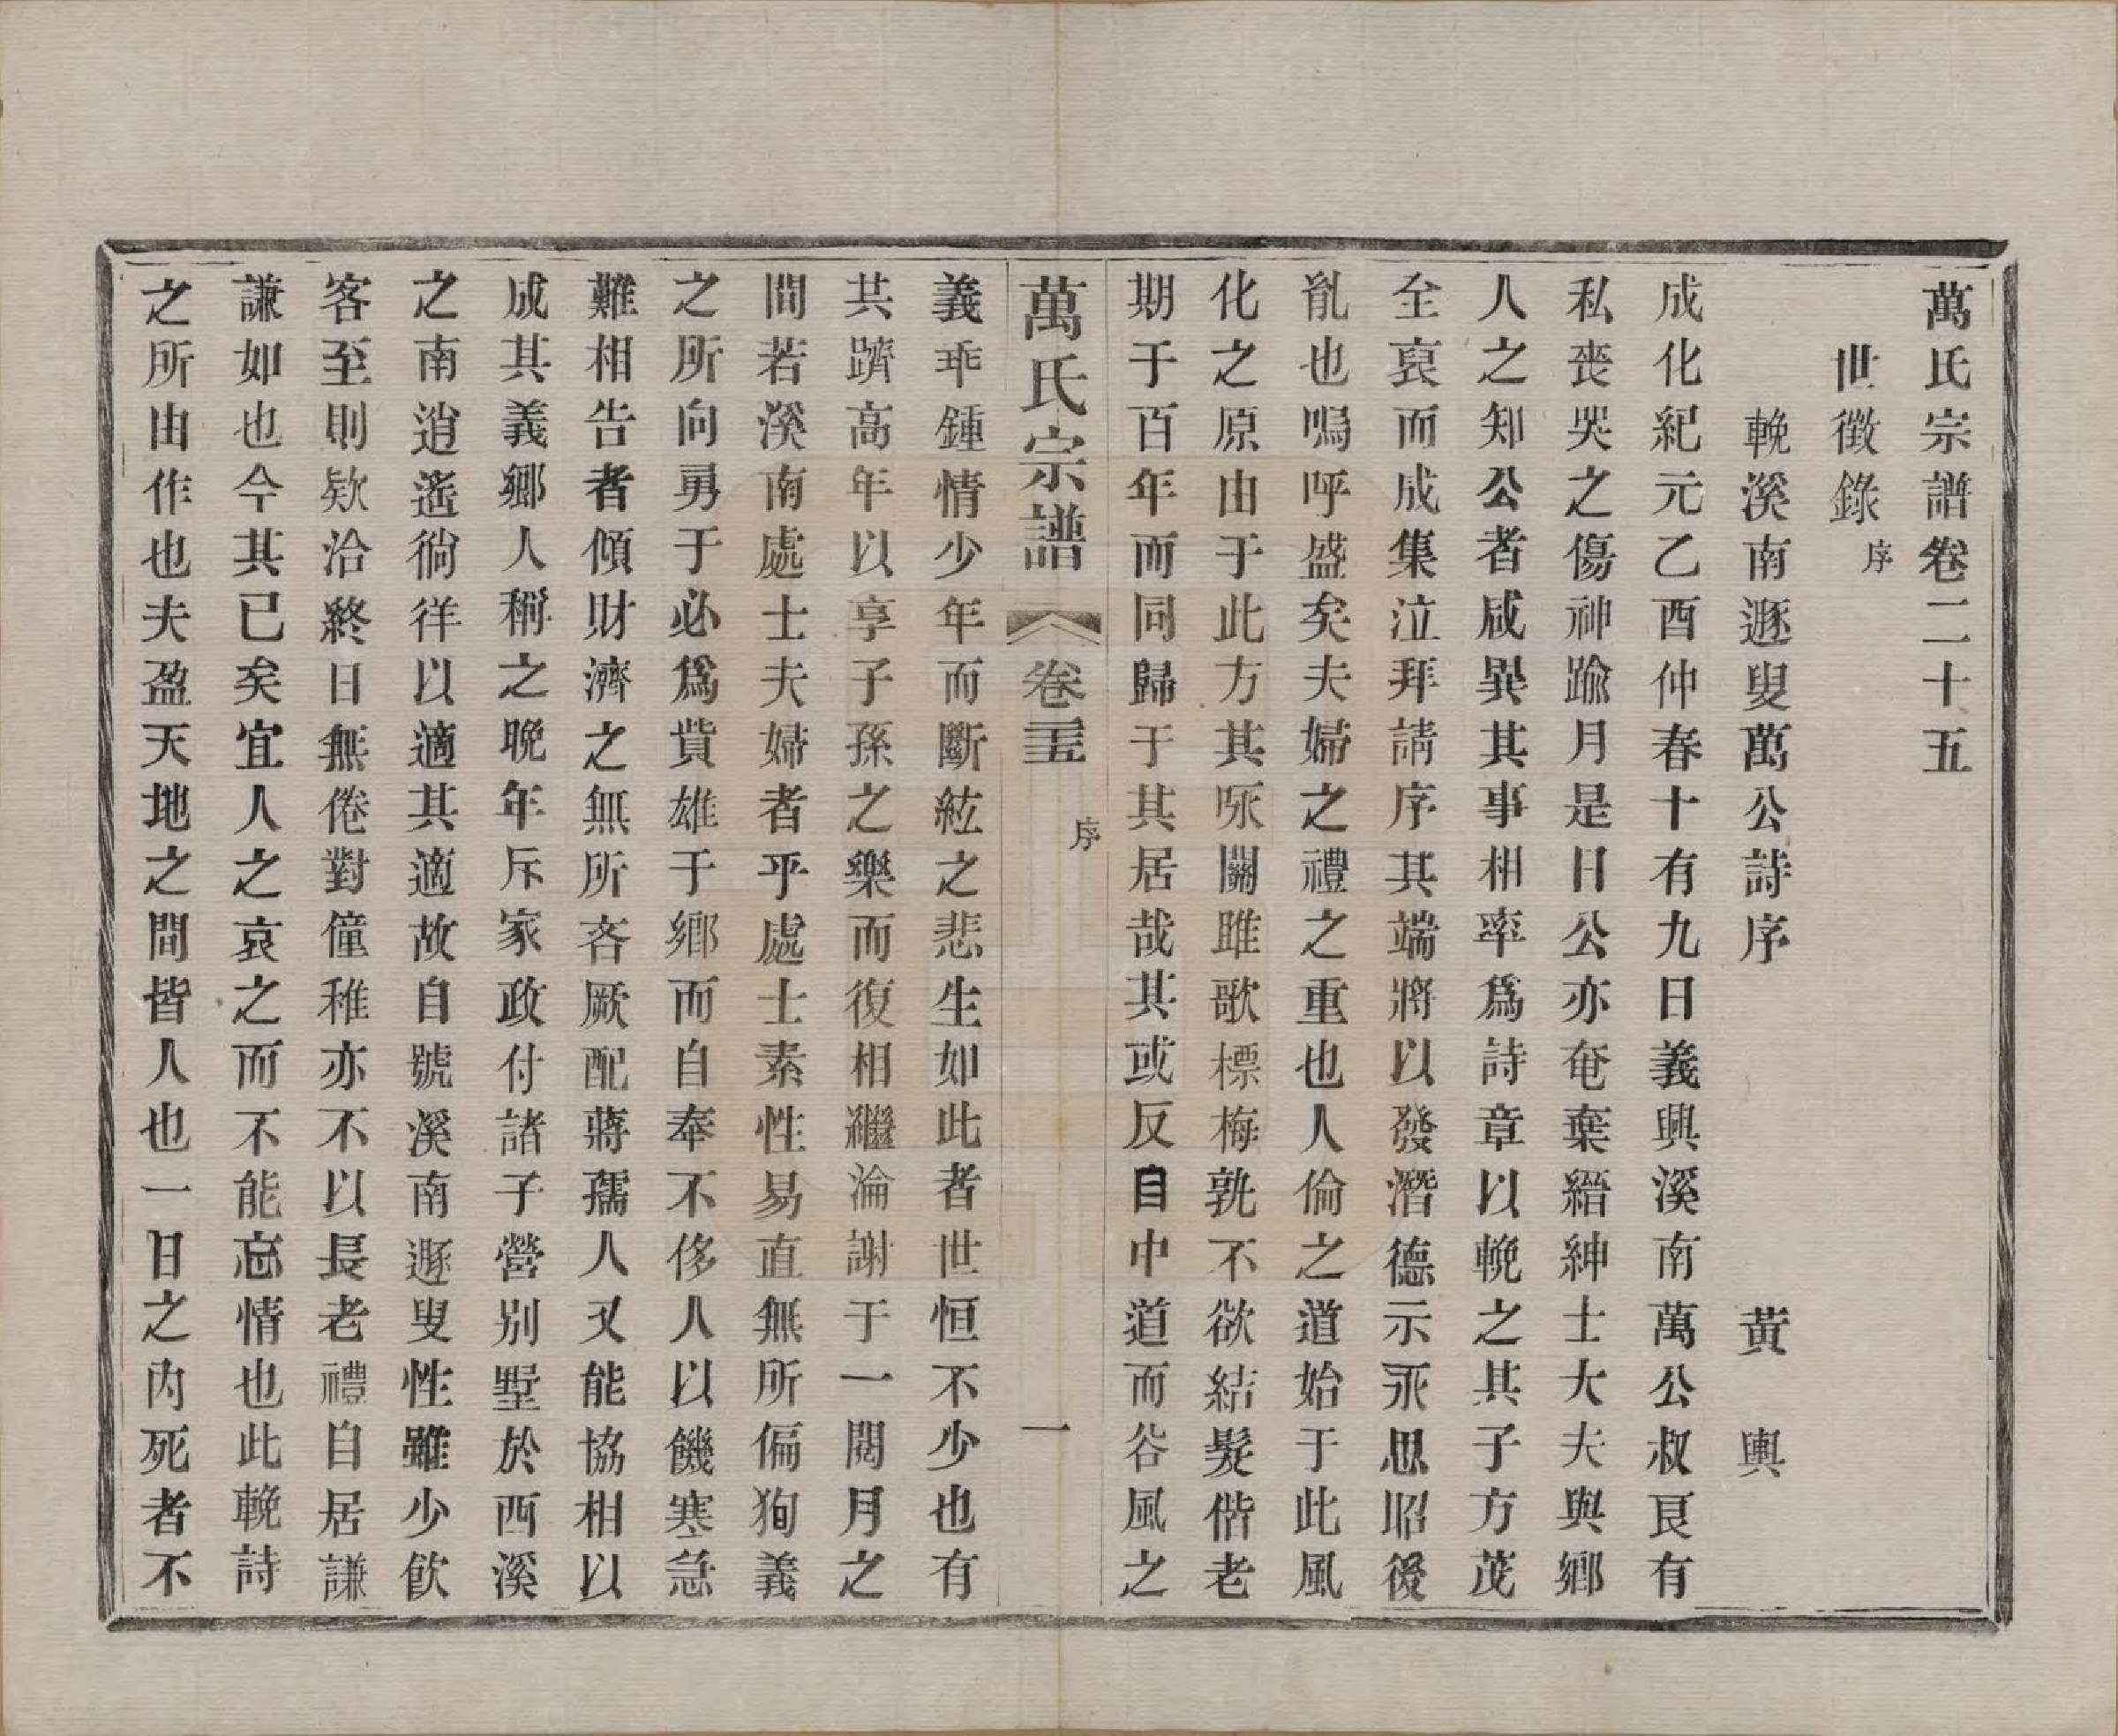 萬氏宗譜卷二十五
世徵錄序
輓溪南遯叟萬公詩序　黃輿
成化紀元乙酉仲春十有九日義興溪南萬公叔良有
私喪哭之傷神踰月是日公亦奄棄縉紳士大夫與鄉
人之知公者咸異其事相率爲詩章以輓之其子方茂
至哀而成集泣拜請序其端將以發潛德示永思昭後
胤也嗚呼盛矣夫婦之禮之重也人倫之道始于此風
化之原由于此方其咏關雎歌標梅孰不欲結髮偕老
期于百年而同歸于其居哉其或反目中道而谷風之
萬氏宗譜　卷二十五　序　一
義乖鍾情少年而斷絃之悲生如此者世恒不少也有
共躋高年以享子孫之樂而復相繼淪謝于一閱月之
間若溪南處士夫婦者乎處士素性易直無所偏狥義
之所向勇于必爲貲雄于鄉而自奉不侈人以饑寒急
難相告者傾財濟之無所吝厥配蔣孺人又能協相以
成其義鄉人稱之晚年斥家政付諸子營別墅於西溪
之南逍遙徜徉以適其適故自號溪南遯叟性雖少飲
客至則欵洽終日無倦對僮稚亦不以長老禮自居謙
謙如也今其已矣宜人之哀之而不能忘情也此輓詩
之所由作也夫盈天地之間皆人也一日之內死者不